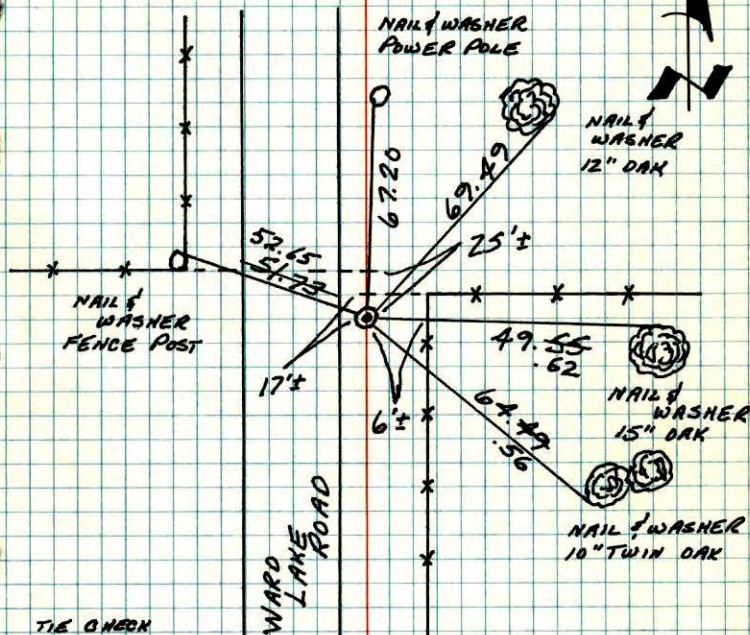 NAIL & WASHER
POWER POLE
NAIL &
WASHER
12" OAK
67.20
69.49
52.65
51.73
25'±
NAIL &
WASHER
FENCE POST
49.55
.62
17'±
6'±
NAIL &
WASHER
15" OAK
64.49
.56
NAIL & WASHER
10" TWIN OAK
WARD
LAKE
ROAD
TIE CHECK